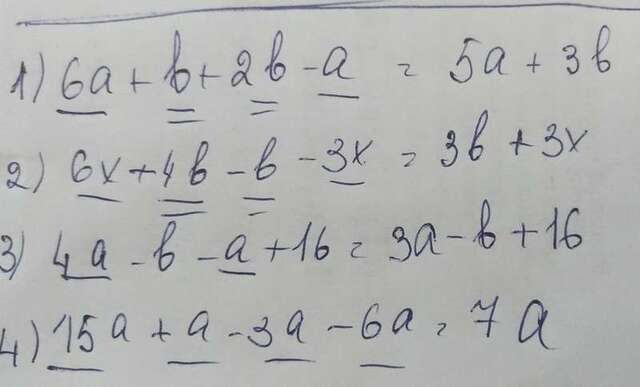 1) 6a + b + 2b - a = 5a + 3b
2) 6x + 4b - b - 3x = 3b + 3x
3) 4a - b - a + 16 = 3a - b + 16
4) 15a + a - 3a - 6a = 7a